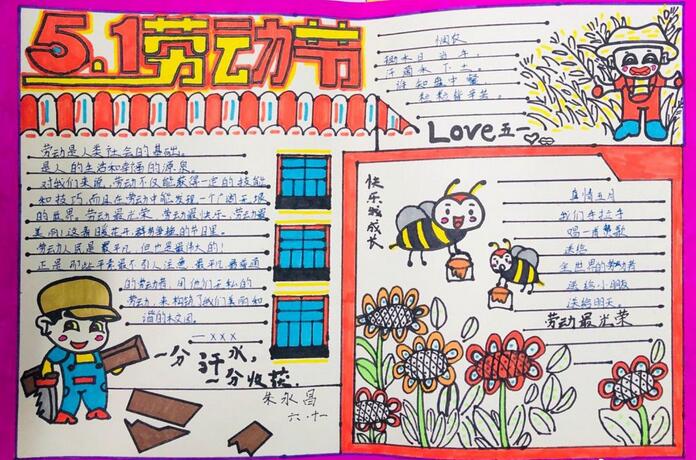 5.1劳动节
悯农
锄禾日当午，
汗滴禾下土。
谁知盘中餐
粒粒皆辛苦。
Love五一
劳动是人类社会的基础。
是人的生活和幸福的源泉。
对我们来说，劳动不仅能获得一定的技能
和技巧，而且在劳动中能发现一个广阔无垠
的世界。劳动最光荣，劳动最快乐，劳动最
美啊！这春日暖花开，的节日里。
劳动人民是最平凡，但也是最伟大的！
正是那些平素最不引人注意，最平凡最普通
的劳动者，用他们无私的
劳动，来构筑了我们美丽和
谐的校园。
一xxx
一分汗水，
一分收获.
朱永昌
六.十一
快乐成长
真情五月
我们手拉手
唱一首赞歌
送给
全世界的劳动者
送给小朋友
送给明天。
劳动最光荣